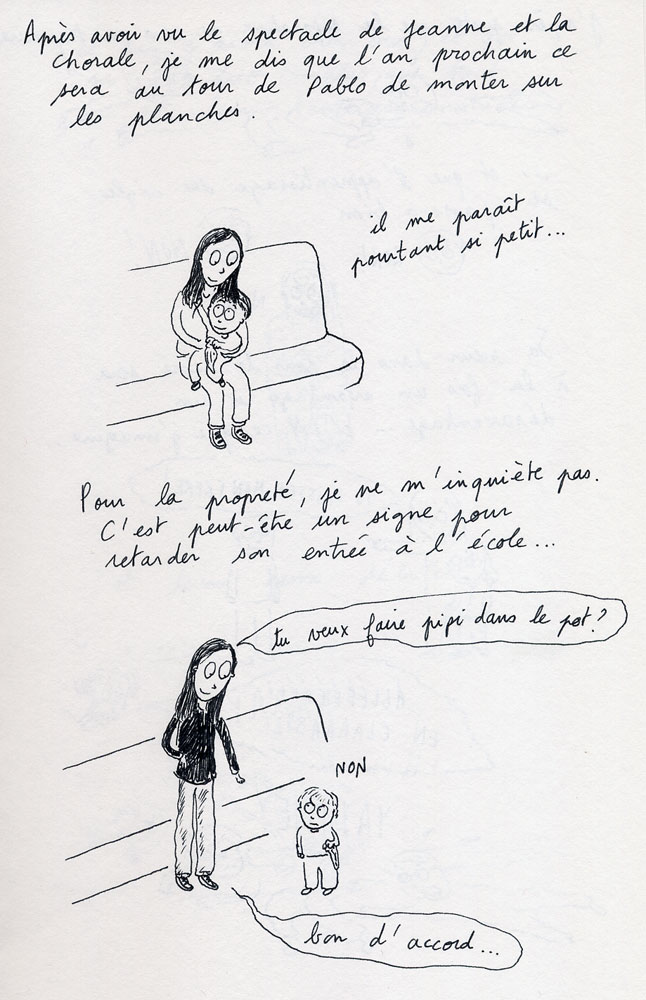 Après avoir vu le spectacle de Jeanne et la
chorale, je me dis que l'an prochain ce
sera au tour de Pablo de monter sur
les planches.
il me paraît
pourtant si petit...
Pour la propreté, je ne m'inquiète pas.
C'est peut-être un signe pour
retarder son entrée à l'école...
tu veux faire pipi dans le pot?
NON
bon d'accord...